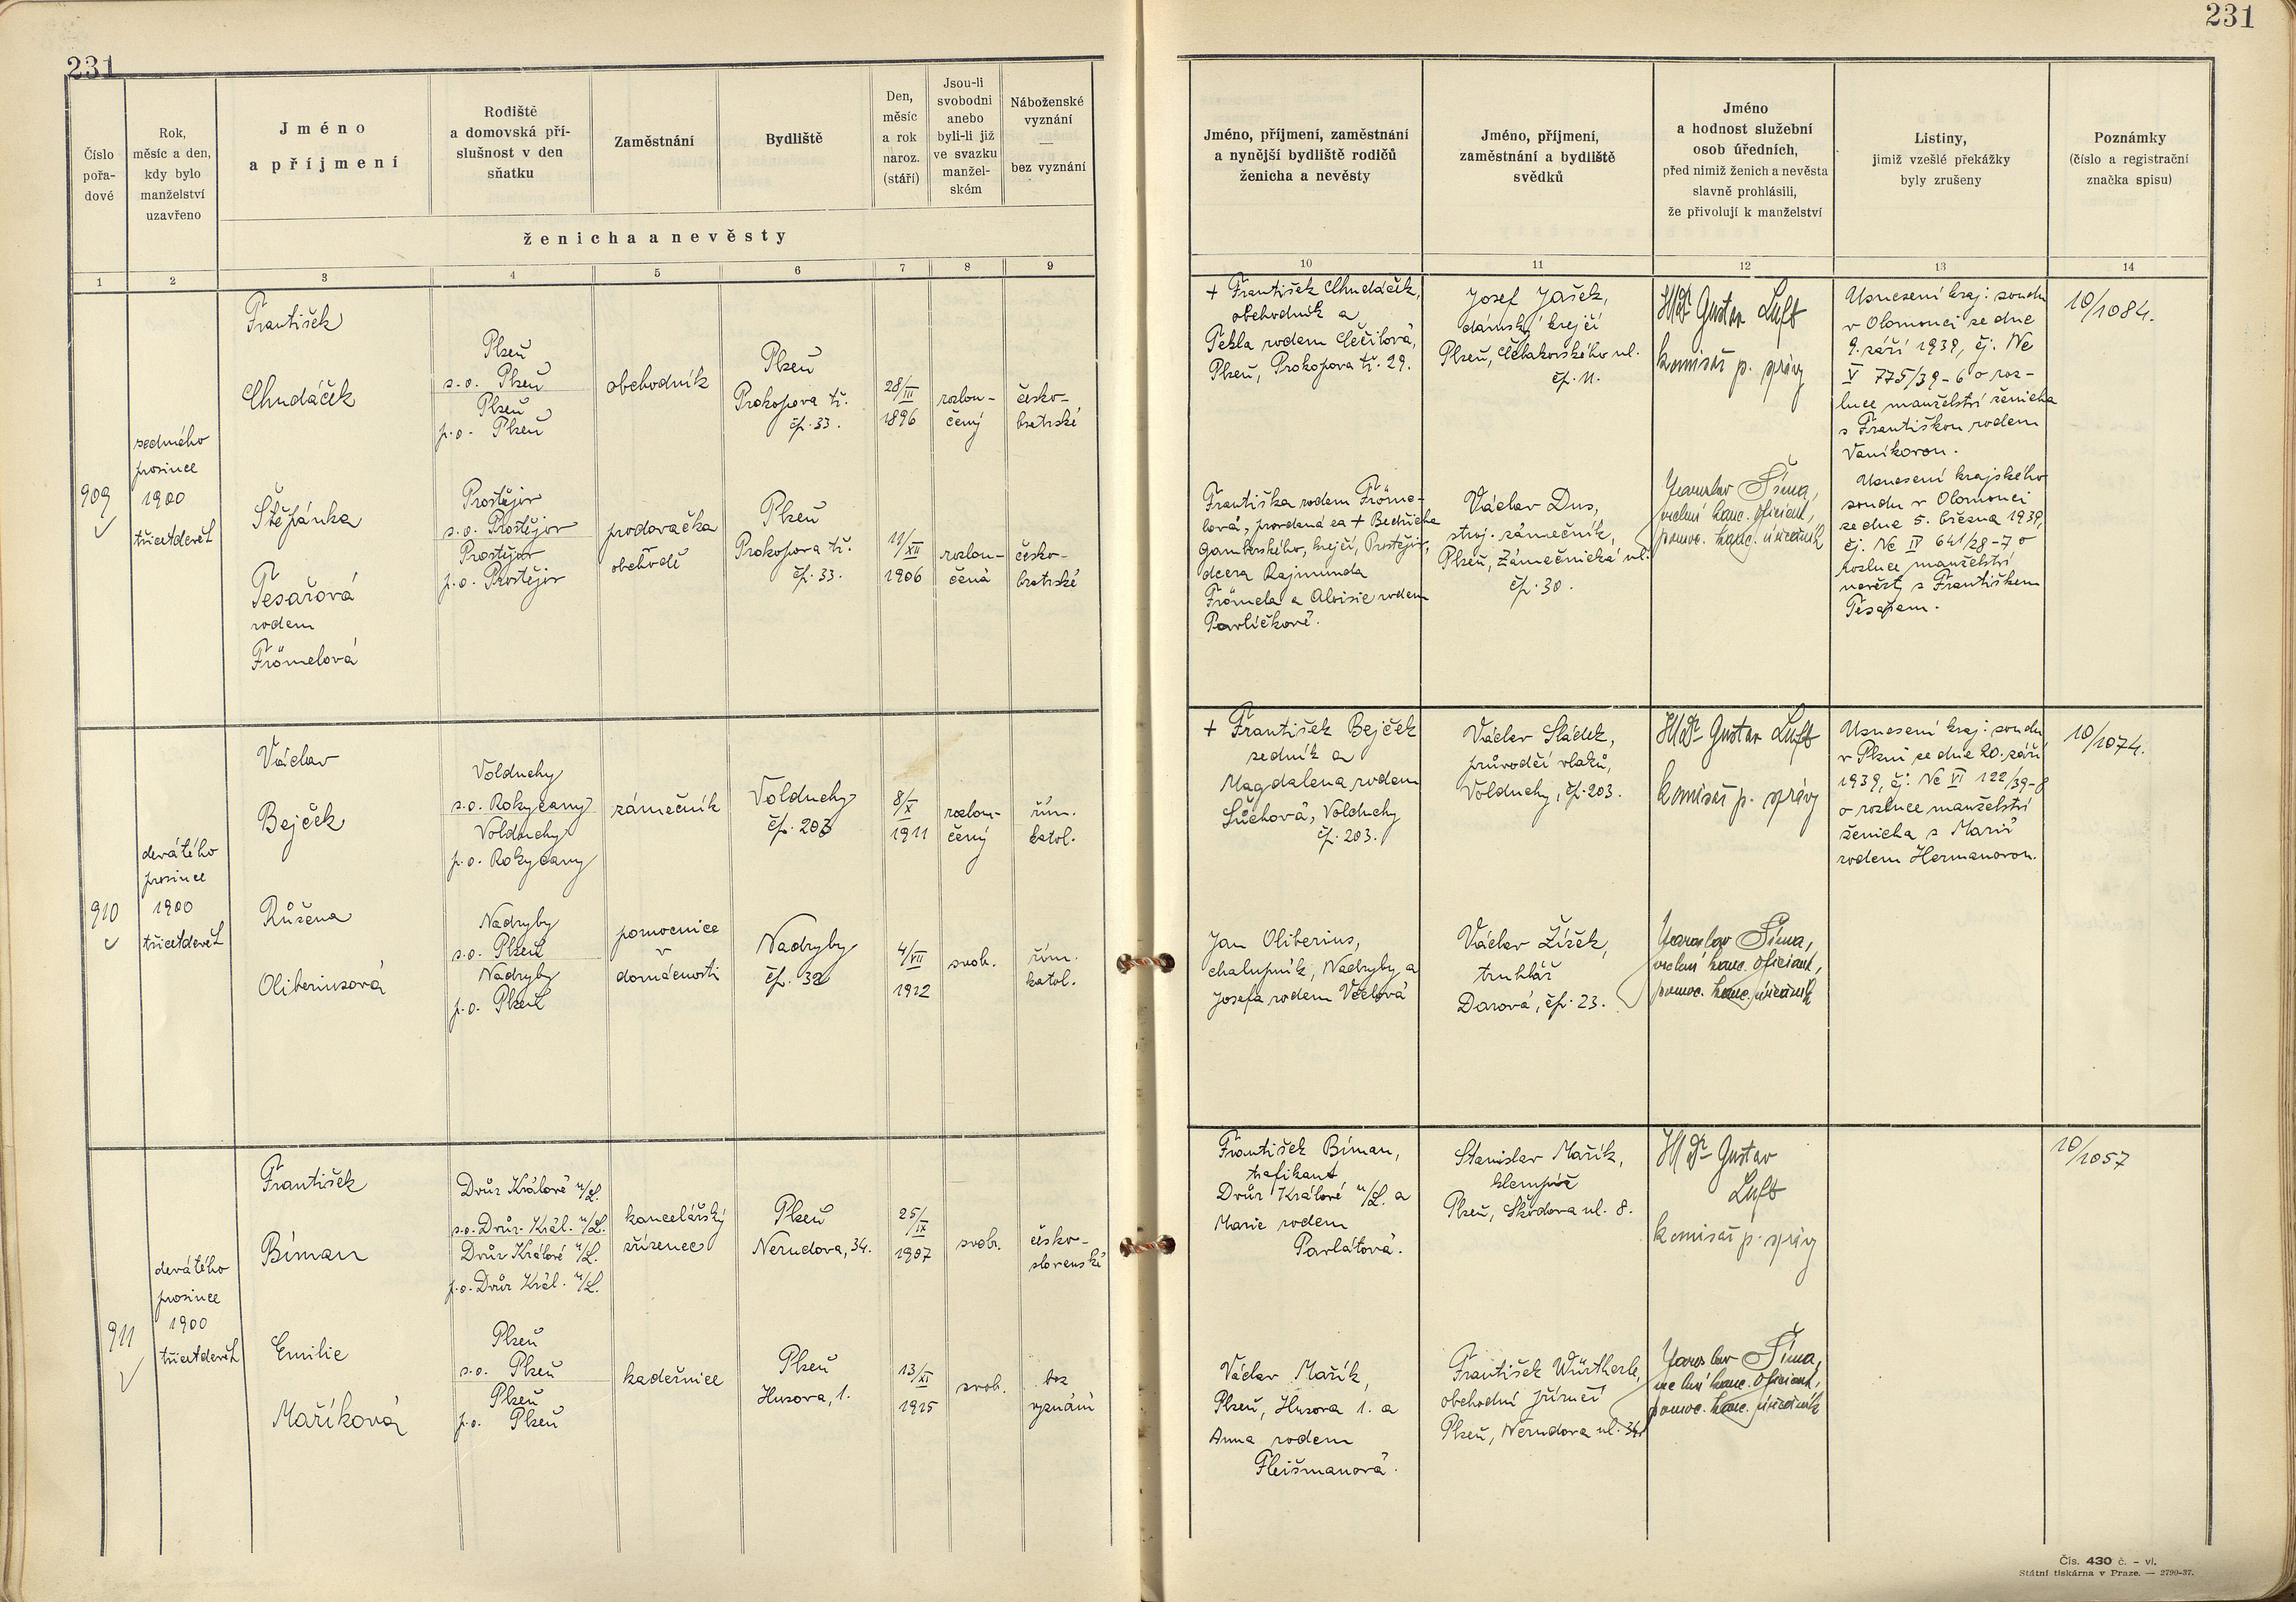 231
231
Číslo
pořa-
dové
Rok,
měsíc a den,
kdy bylo
manželství
uzavřeno
Jméno
a příjmení
Rodiště
a domovská pří-
slušnost v den
sňatku
Zaměstnání
Bydliště
Den,
měsíc
a rok
naroz.
(stáří)
Jsou-li
svobodni
anebo
byli-li již
ve svazku
manžel-
ském
Náboženské
vyznání
—
bez vyznání
ženicha a nevěsty
Jméno, příjmení, zaměstnání
a nynější bydliště rodičů
ženicha a nevěsty
Jméno, příjmení,
zaměstnání a bydliště
svědků
Jméno
a hodnost služební
osob úředních,
před nimiž ženich a nevěsta
slavně prohlásili,
že přivolují k manželství
Listiny,
jimiž vzešlé překážky
byly zrušeny
Poznámky
(číslo a registrační
značka spisu)
1 2 3 4 5 6 7 8 9 10 11 12 13 14
909
sedmého
prosince
1900
třicetdevět
František
Chudáček
Plzeň
s.o. Plzeň
Plzeň
p.o. Plzeň
obchodník
Plzeň
Prokopova tř.
čp. 33.
28/III
1896
rozlou-
čený
česko-
bratrské
+ František Chudáček,
obchodník a
Tekla rodem Čečilová,
Plzeň, Prokopova tř. 29.
Josef Jašek,
dámský krejčí
Plzeň, Čelakovského ul.
čp. 11.
JUDr Gustav Luft
komisař p. správy
Usnesení kraj. soudu
v Olomouci ze dne
9. září 1939, čj. Nc
V 775/39-6 o roz-
luce manželství ženicha
s Františkou rodem
Vaníkovou.
10/1084.
Štěpánka
Tesařová
rodem
Frömelová
Prostějov
s.o. Prostějov
Prostějov
p.o. Prostějov
prodavačka
v
obchodě
Plzeň
Prokopova tř.
čp. 33.
11/XII
1906
rozlou-
čená
česko-
bratrské
Františka rodem Fröme-
lová, provdaná za + Bedřicha
krejčí, Prostějov,
dcera Rajmunda
Frömela a Aloisie rodem
Pavlíčkové.
Václav Dus,
stroj. zámečník,
Plzeň, Zámečnická ul.
čp. 30.
Jaroslav Šíma,
vrchní kanc. oficiant,
pomoc. kanc. úředník
Usnesení krajského
soudu v Olomouci
ze dne 5. března 1939,
čj. Nc IV 641/28-7 o
rozluce manželství
nevěsty s Františkem
Tesařem.
910
devátého
prosince
1900
třicetdevět
Václav
Bejček
Volduchy
s.o. Rokycany
Volduchy
p.o. Rokycany
zámečník
Volduchy
čp. 203
8/X
1911
rozlou-
čený
řím.
katol.
+ František Bejček
zedník a
Magdalena rodem
Volduchy
čp. 203.
Václav Sládek,
průvodčí vlaků,
Volduchy, čp. 203.
JUDr Gustav Luft
komisař p. správy
Usnesení kraj. soudu
v Plzni ze dne 20. září
1939, čj. Nc VI 122/39-8
o rozluce manželství
ženicha s Marií
rodem Hermanovou.
10/1074.
Růžena
Oliberiusová
Nadryby
s.o. Plzeň
Nadryby
p.o. Plzeň
pomocnice
v
domácnosti
Nadryby
čp. 32
4/VII
1912
svob.
řím.
katol.
Jan Oliberius,
chalupník, Nadryby a
Josefa rodem Včelová
Václav Žížek,
truhlář
Darová, čp. 23.
Jaroslav Šíma,
vrchní kanc. oficiant,
pomoc. kanc. úředník
911
devátého
prosince
1900
třicetdevět
František
Biman
Dvůr Králové n/L.
s.o. Dvůr. Král. n/L.
Dvůr Králové n/L.
p.o. Dvůr Král. n/L.
kancelářský
zřízenec
Plzeň
Nerudova, 34.
25/IX
1907
svob.
česko-
slovenské
František Biman,
trafikant
Dvůr Králové n/L. a
Marie rodem
Pavlátová.
Stanislav Mařík,
klempíř
Plzeň, Škodova ul. 8.
JUDr Gustav
Luft
komisař p. správy
10/1057
Emilie
Maříková
Plzeň
s.o. Plzeň
Plzeň
p.o. Plzeň
kadeřnice
Plzeň
Husova, 1.
13/XI
1915
svob.
bez
vyznání
Václav Mařík,
Plzeň, Husova 1. a
Anna rodem
Fleišmanová.
František Würtherle,
obchodní příručí
Plzeň, Nerudova ul. 34.
Jaroslav Šíma,
vrchní kanc. oficiant,
pomoc. kanc. úředník
Čís. 430 č. - vl.
Státní tiskárna v Praze. — 2790-37.